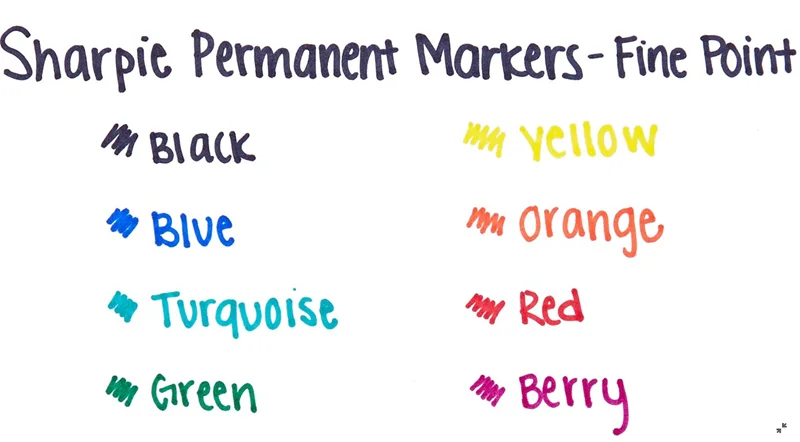 Sharpie Permanent Markers - Fine Point
Black
Blue
Turquoise
Green
Yellow
Orange
Red
Berry